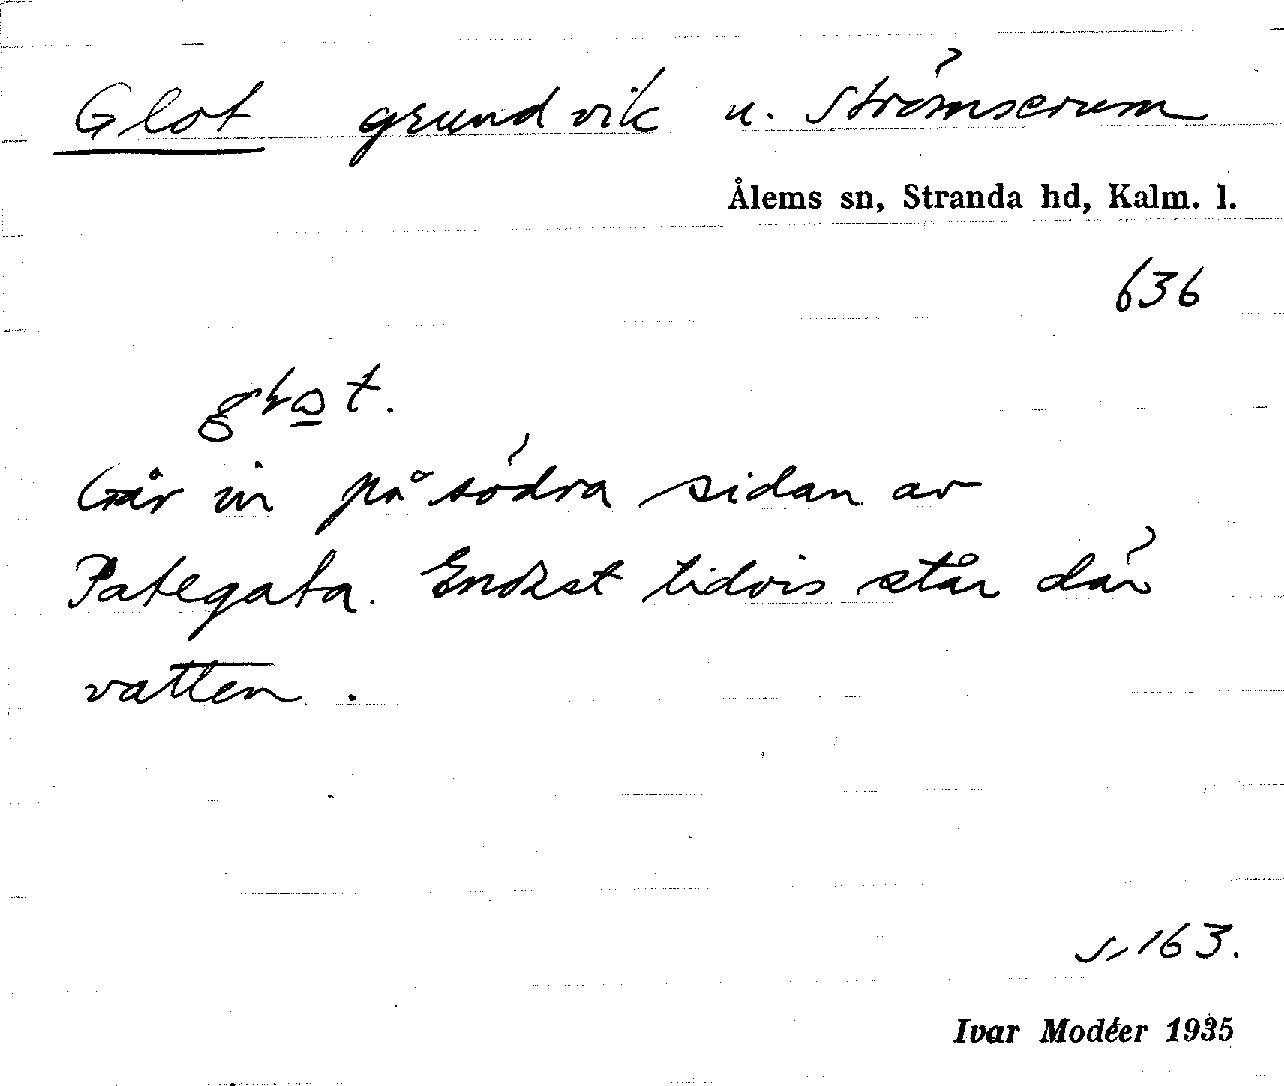 Glot grundvik u. Strömserum
Ålems sn, Stranda hd, Kalm. l.
636
t.
Går in på södra sidan av
Pategata. Endast tidvis står där
vatten.
s. 163.
Ivar Modéer 1935